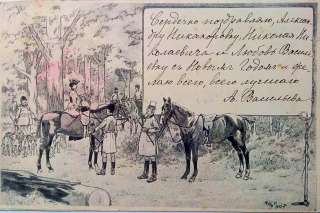 Сердечно поздравляю, Алексан-
дру Никаноровну, Николая Ни-
колаевича и Любовь Василь-
евну съ Новымъ Годомъ и же-
лаю всего, всего лучшаго
А. Васильева